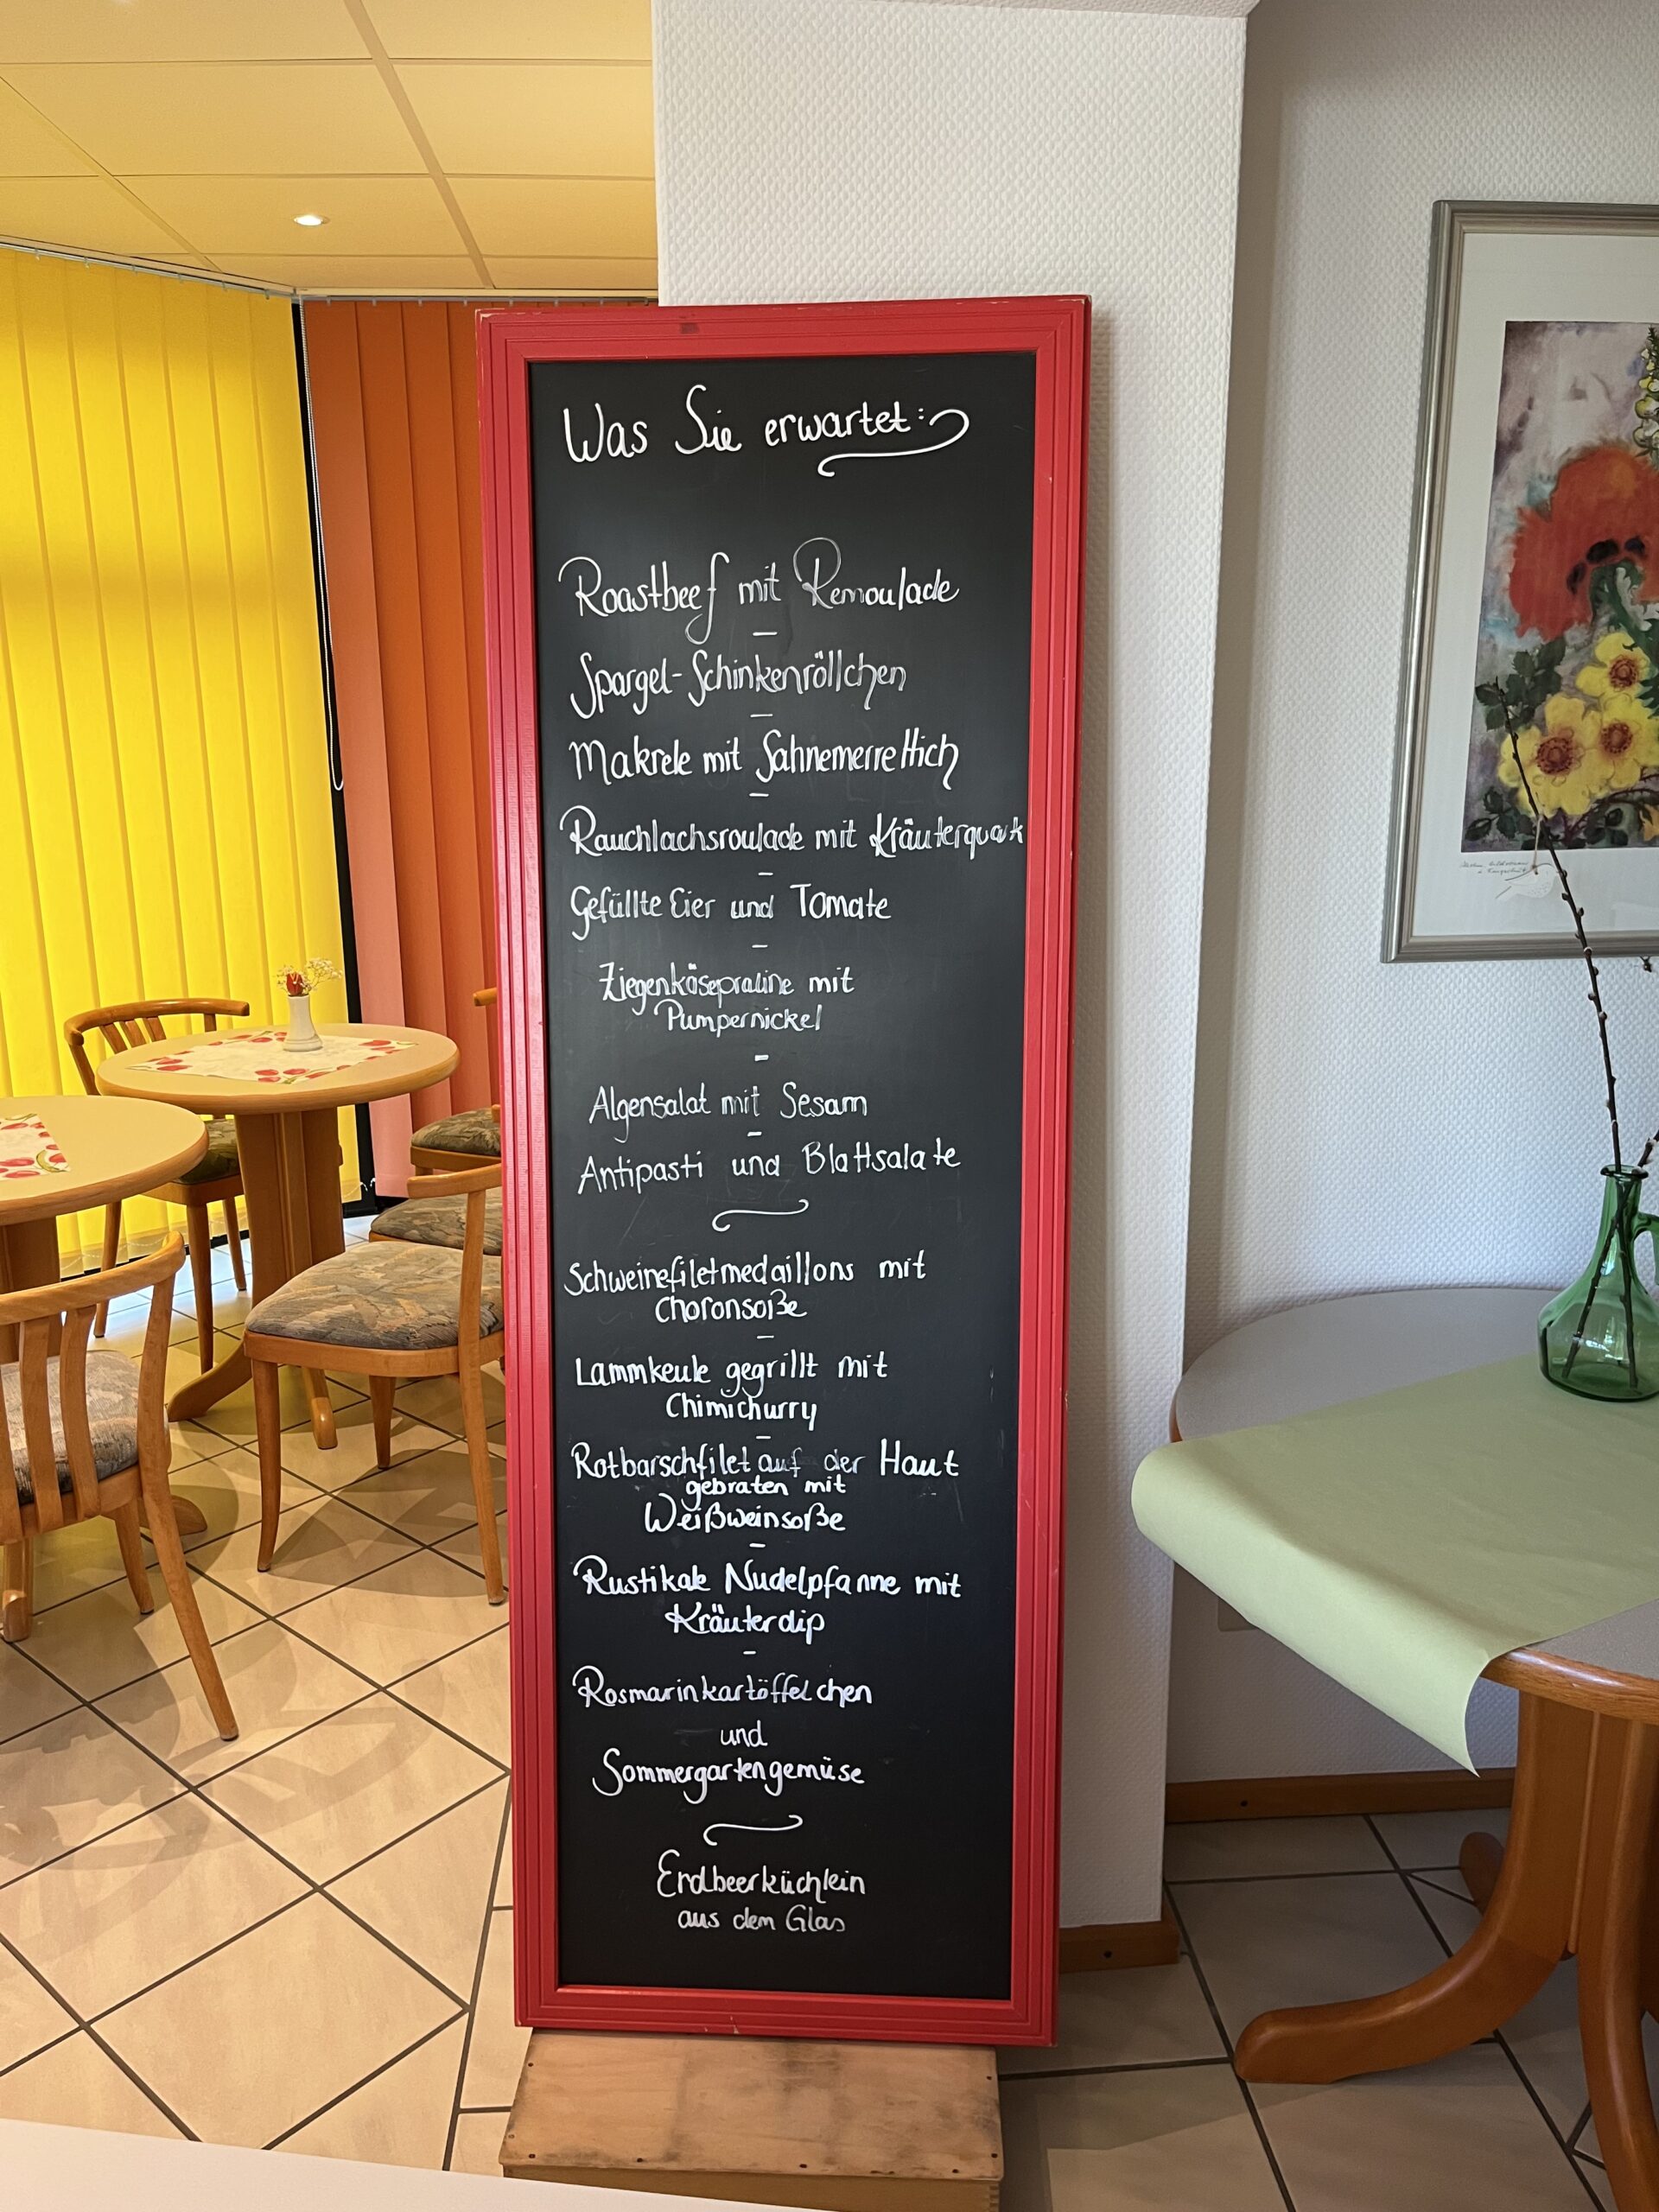 Was Sie erwartet:
Roastbeef mit Remoulade
–
Spargel-Schinkenröllchen
–
Makrele mit Sahnemerrettich
–
Rauchlachsroulade mit Kräuterquark
–
Gefüllte Eier und Tomate
–
Ziegenkäsepraline mit
Pumpernickel
–
Algensalat mit Sesam
–
Antipasti und Blattsalate
Schweinefiletmedaillons mit
Choronsoße
–
Lammkeule gegrillt mit
Chimichurry
–
Rotbarschfilet auf der Haut
gebraten mit
Weißweinsoße
–
Rustikale Nudelpfanne mit
Kräuterdip
–
Rosmarinkartöffelchen
und
Sommergartengemüse
Erdbeerküchlein
aus dem Glas